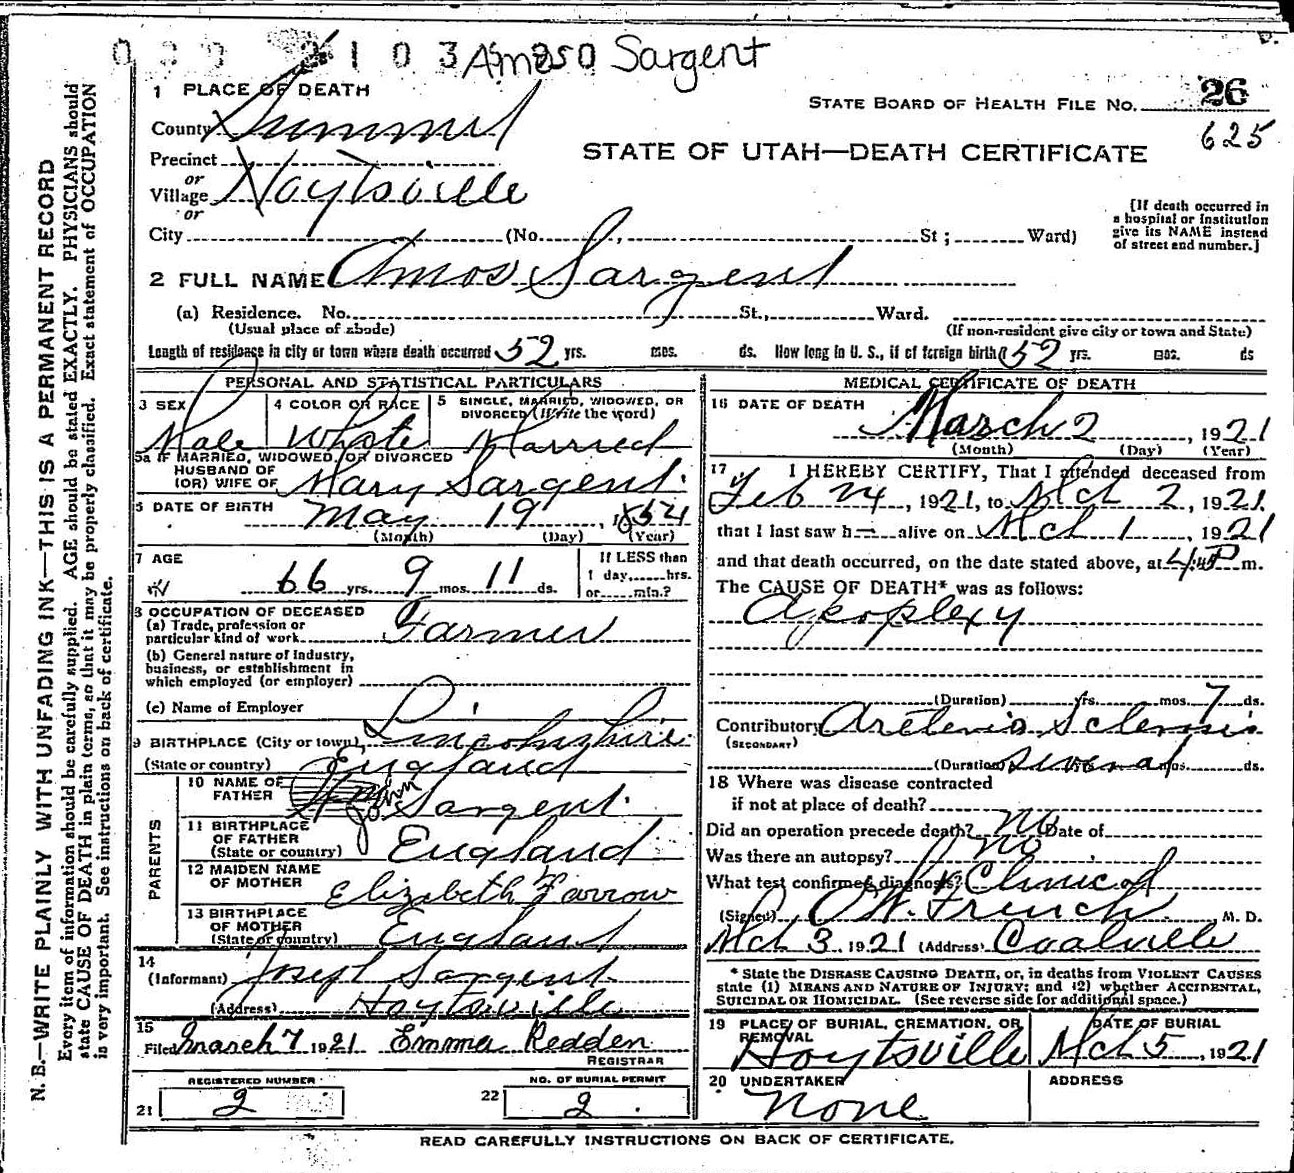 2103 Amos O Sargent
1 PLACE OF DEATH
STATE BOARD OF HEALTH FILE NO. 26
625
County Summit
STATE OF UTAH—DEATH CERTIFICATE
Precinct
or
Village Hoytsville
or
[If death occurred in a hospital or institution give its NAME instead of street and number.]
City (No. , St ; Ward)
2 FULL NAME Amos Sargent
(a) Residence. No. St., Ward.
(Usual place of abode) (If non-resident give city or town and State)
Length of residence in city or town where death occurred 52 yrs. mos. ds. How long in U. S., if of foreign birth? 52 yrs. mos. ds
PERSONAL AND STATISTICAL PARTICULARS
3 SEX Male
4 COLOR OR RACE White
5 SINGLE, MARRIED, WIDOWED, OR DIVORCED (Write the word) Married
5a IF MARRIED, WIDOWED, OR DIVORCED
HUSBAND OF
(OR) WIFE OF Mary Sargent.
6 DATE OF BIRTH May 19, 1854
(Month) (Day) (Year)
7 AGE 66 yrs. 9 mos. 11 ds.
If LESS than
1 day, hrs.
or min.?
8 OCCUPATION OF DECEASED
(a) Trade, profession or
particular kind of work Farmer
(b) General nature of Industry,
business, or establishment in
which employed (or employer)
(c) Name of Employer
9 BIRTHPLACE (City or town), Lincolnshire
(State or country) England
PARENTS
10 NAME OF
FATHER John Sargent.
11 BIRTHPLACE
OF FATHER
(State or country) England
12 MAIDEN NAME
OF MOTHER Elizabeth Farrow
13 BIRTHPLACE
OF MOTHER
(State or country) England
14
(Informant) Joseph Sargent.
(Address) Hoytsville
15
Filed March 7 1921 Emma Redden
REGISTRAR
REGISTERED NUMBER
21 2
NO. OF BURIAL PERMIT
22 2.
MEDICAL CERTIFICATE OF DEATH
16 DATE OF DEATH
March 2, 1921
(Month) (Day) (Year)
17 I HEREBY CERTIFY, That I attended deceased from
Feb 24, 1921, to Mch 2, 1921
that I last saw h— alive on Mch 1 1921
and that death occurred, on the date stated above, at 4 P m.
The CAUSE OF DEATH* was as follows:
Apoplexy
(Duration) yrs. mos. 7 ds.
Contributory Arterio Sclerosis
(SECONDARY)
(Duration) several mos. ds.
18 Where was disease contracted
if not at place of death?
Did an operation precede death? No Date of
Was there an autopsy? No
What test confirmed diagnosis? Clinical
(Signed) O W. French, M. D.
Mch 3 1921 (Address) Coalville
* State the DISEASE CAUSING DEATH, or, in deaths from VIOLENT CAUSES
state (1) MEANS AND NATURE OF INJURY; and (2) whether ACCIDENTAL,
SUICIDAL OR HOMICIDAL. (See reverse side for additional space.)
19 PLACE OF BURIAL, CREMATION, OR
REMOVAL
Hoytsville
DATE OF BURIAL
Mch 5, 1921
20 UNDERTAKER
None
ADDRESS
READ CAREFULLY INSTRUCTIONS ON BACK OF CERTIFICATE.
N. B.—WRITE PLAINLY WITH UNFADING INK—THIS IS A PERMANENT RECORD
Every item of information should be carefully supplied. AGE should be stated EXACTLY. PHYSICIANS should
state CAUSE OF DEATH in plain terms, so that it may be properly classified. Exact statement of OCCUPATION
is very important. See instructions on back of certificate.